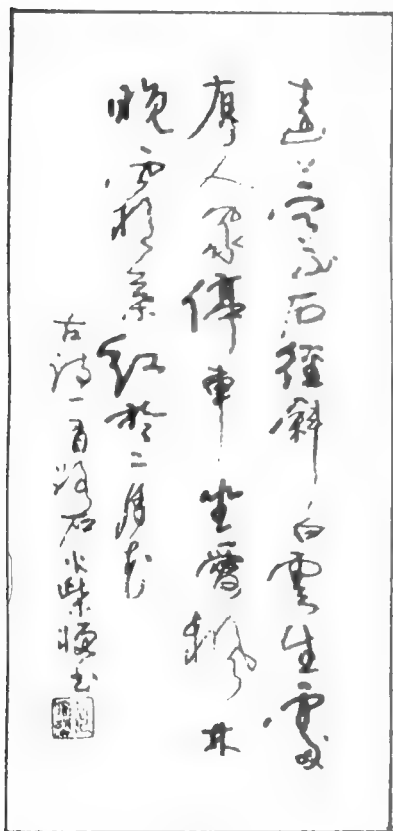 遠上寒山石徑斜白雲生處
有人家停車坐愛楓林
晚霜葉紅於二月花
古詩一首石柴书